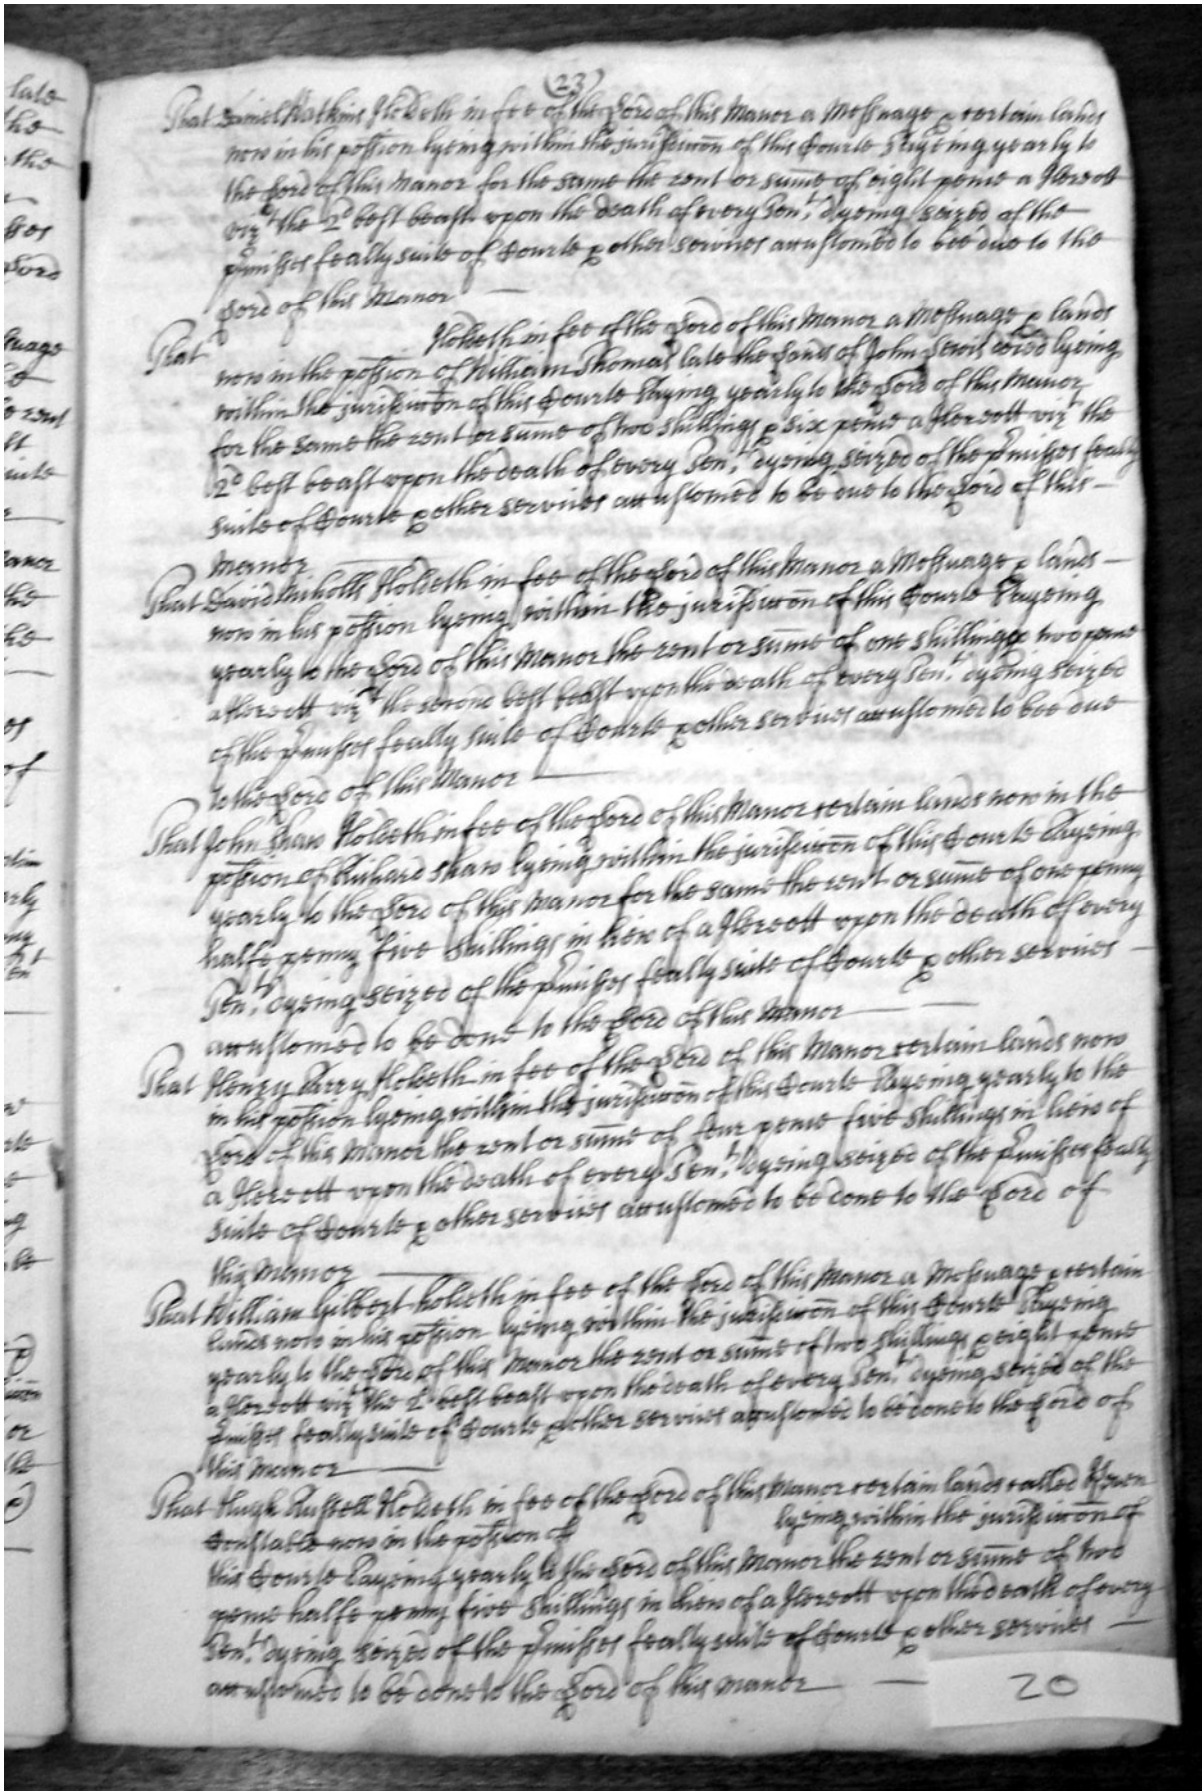 (23)
That Daniel Watkins Holdeth in fee of the Lord of this Manor a Messuage & certain lands
now in his possion lyeing within the jurisdiccon of this Courte Payeing yearly to
the Lord of this Manor for the same the rent or sume of eight pence a Hereott
vizt the 2d best beast upon the death of every Tent. dyeing seized of the
pmisses fealty suite of Courte & other services accustomed to bee due to the
Lord of this Manor —
That Holdeth in fee of the Lord of this Manor a Messuage & lands
now in the possion of William Thomas late the lands of John Lewis decd lyeing
within the jurisdiccon of this Courte Paying yearly to the Lord of this Manor
for the same the rent or sume of two shillings & six pence a Hereott vizt the
2d best beast upon the death of every Tent. dyeing seized of the pmisses fealty
suite of Courte & other services accustomed to be due to the Lord of this —
Manor —
That David Nicholls Holdeth in fee of the Lord of this Manor a Messuage & lands —
now in his possion lyeing within the jurisdiccon of this Courte Payeing
yearly to the Lord of this Manor the rent or sume of one shilling & two pence
a Hereott vizt the second best beast upon the death of every Tent. dyeing seized
of the pmisses fealty suite of Courte & other services accustomed to bee due
to the Lord of this Manor —
That John Shaw Holdeth in fee of the Lord of this Manor certain lands now in the
possion of Richard Shaw lyeing within the jurisdiccon of this Courte Payeing
yearly to the Lord of this Manor for the same the rent or sume of one penny
halfe penny five shillings in liew of a Hereott upon the death of every
Tent. dyeing seized of the pmisses fealty suite of Courte & other services —
accustomed to be done to the Lord of this Manor —
That Henry Parry Holdeth in fee of the Lord of this Manor certain lands now
in his possion lyeing within the jurisdiccon of this Courte Payeing yearly to the
Lord of this Manor the rent or sume of four pence five shillings in liew of
a Hereott upon the death of every Tent. dyeing seized of the pmisses fealty
suite of Courte & other services accustomed to be done to the Lord of
this Manor —
That William Gilbert holdeth in fee of the Lord of this Manor a Messuage & certain
lands now in his possion lyeing within the jurisdiccon of this Courte Payeing
yearly to the Lord of this Manor the rent or sume of two shillings & eight pence
a Hereott vizt the 2d best beast upon the death of every Tent. dyeing seized of the
pmisses fealty suite of Courte & other services accustomed to be done to the Lord of
this Manor —
That Hugh Russell Holdeth in fee of the Lord of this Manor certain lands called
Constable now in the possion of lyeing within the jurisdiccon of
this Courte Payeing yearly to the Lord of this Manor the rent or sume of two
pence halfe penny five shillings in liew of a Hereott upon the death of every
Tent. dyeing seized of the pmisses fealty suite of Courte & other services —
accustomed to be done to the Lord of this Manor —
20